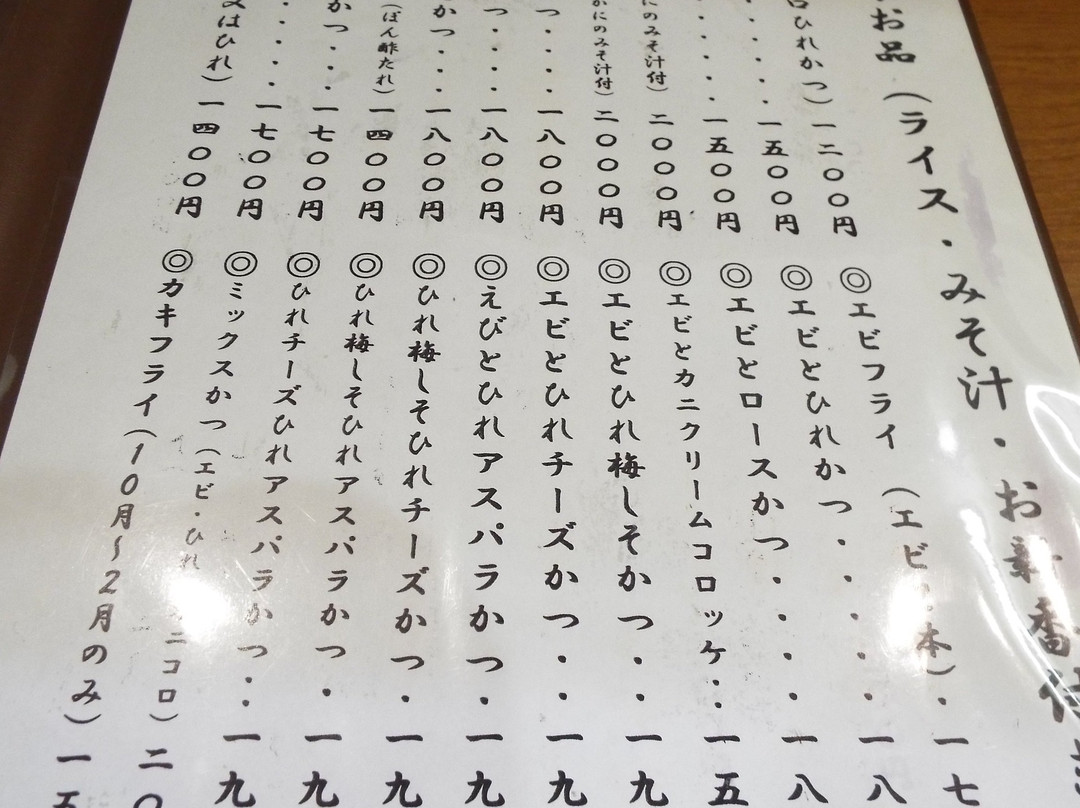 お品（ライス・みそ汁・お新香付
ひれかつ）一二〇〇円
・・・・一五〇〇円
・・・・一五〇〇円
にのみそ汁付）二〇〇〇円
かにのみそ汁付）二〇〇〇円
つ・・・・一八〇〇円
つ・・・・一八〇〇円
かつ・・・一八〇〇円
（ぽん酢たれ）一四〇〇円
かつ・・・一七〇〇円
・・・・一七〇〇円
又はひれ）一四〇〇円
◎エビフライ（エビ 本）・一七
◎エビとひれかつ・・・・・一八
◎エビとロースかつ・・・・一八
◎エビとカニクリームコロッケ・・一五
◎エビとひれ梅しそかつ・・一九
◎エビとひれチーズかつ・・一九
◎えびとひれアスパラかつ・一九
◎ひれ梅しそひれチーズかつ・一九
◎ひれ梅しそひれアスパラかつ・一九
◎ひれチーズひれアスパラかつ・・一九
◎ミックスかつ（エビ・ひれ ニコロ）二〇
◎カキフライ（10月〜2月のみ）一五